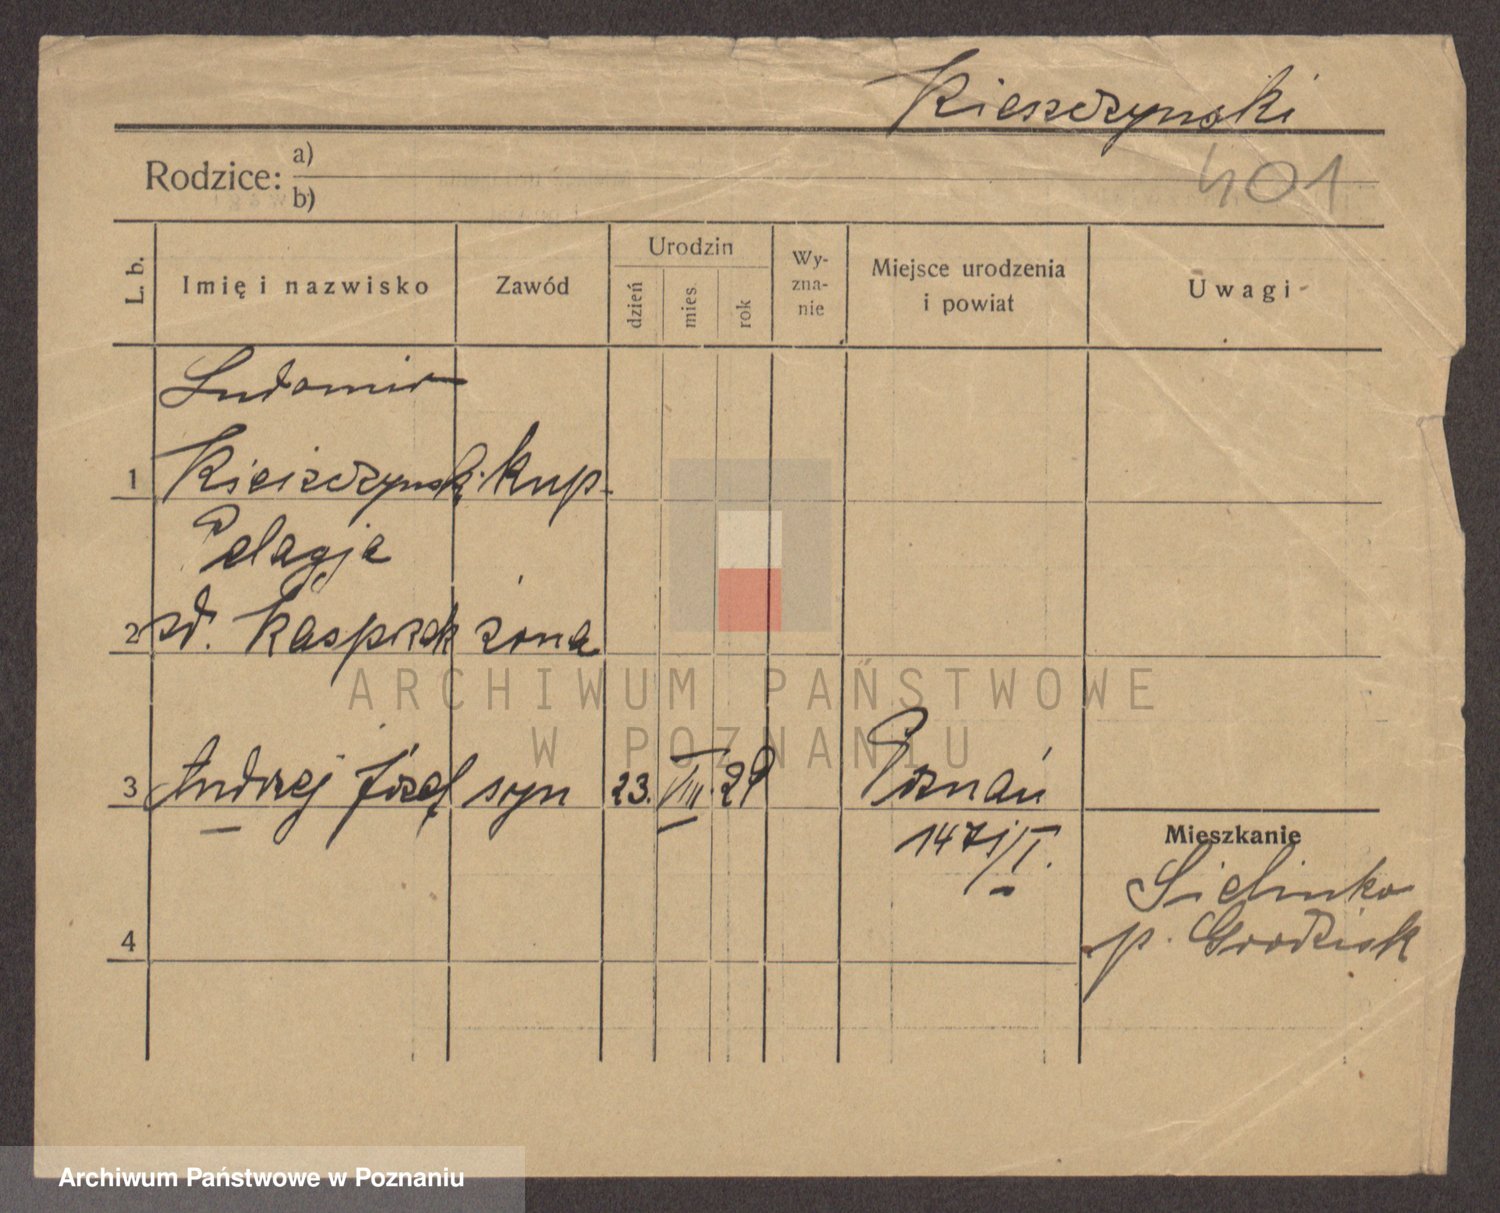 Kieszczynski
401
Rodzice: a)
b)
L. b.
Imię i nazwisko
Zawód
Urodzin
dzień
mies.
rok
Wy-
zna-
nie
Miejsce urodzenia
i powiat
Uwagi
Ludomir
1 Kieiszczynski kup.
Pelagja
2 zd. Kasprzak żona
3 Andrzej Józef syn 23. VIII. 29 Poznań
1471/I.
Mieszkanie
Sielinko
p. Grodzisk
4
ARCHIWUM PAŃSTWOWE
W POZNANIU
Archiwum Państwowe w Poznaniu